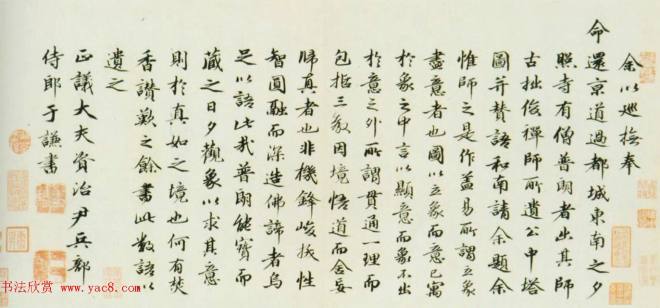 余以巡撫奉
命還京道過都城東南之夕
照寺有僧普朗者出其師
古拙俊禪師所遺公中塔
圖并贊語和南請余題余
惟師之是作蓋易所謂立象
盡意者也圖以立象而意已寓
於象之中言以顯意而象不出
於意之外所謂貫通一理而
包括三教因境悟道而舍妄
歸真者也非機鋒峻拔性
智圓融而深造佛諦者烏
足以語此哉普朗能寶而
藏之日夕觀象以求其意
則於真如之境也何有焚
香讚歎之餘書此數語以
遺之
正議大夫資治尹兵部
侍郎于謙書
书法欣赏
www.yac8.com